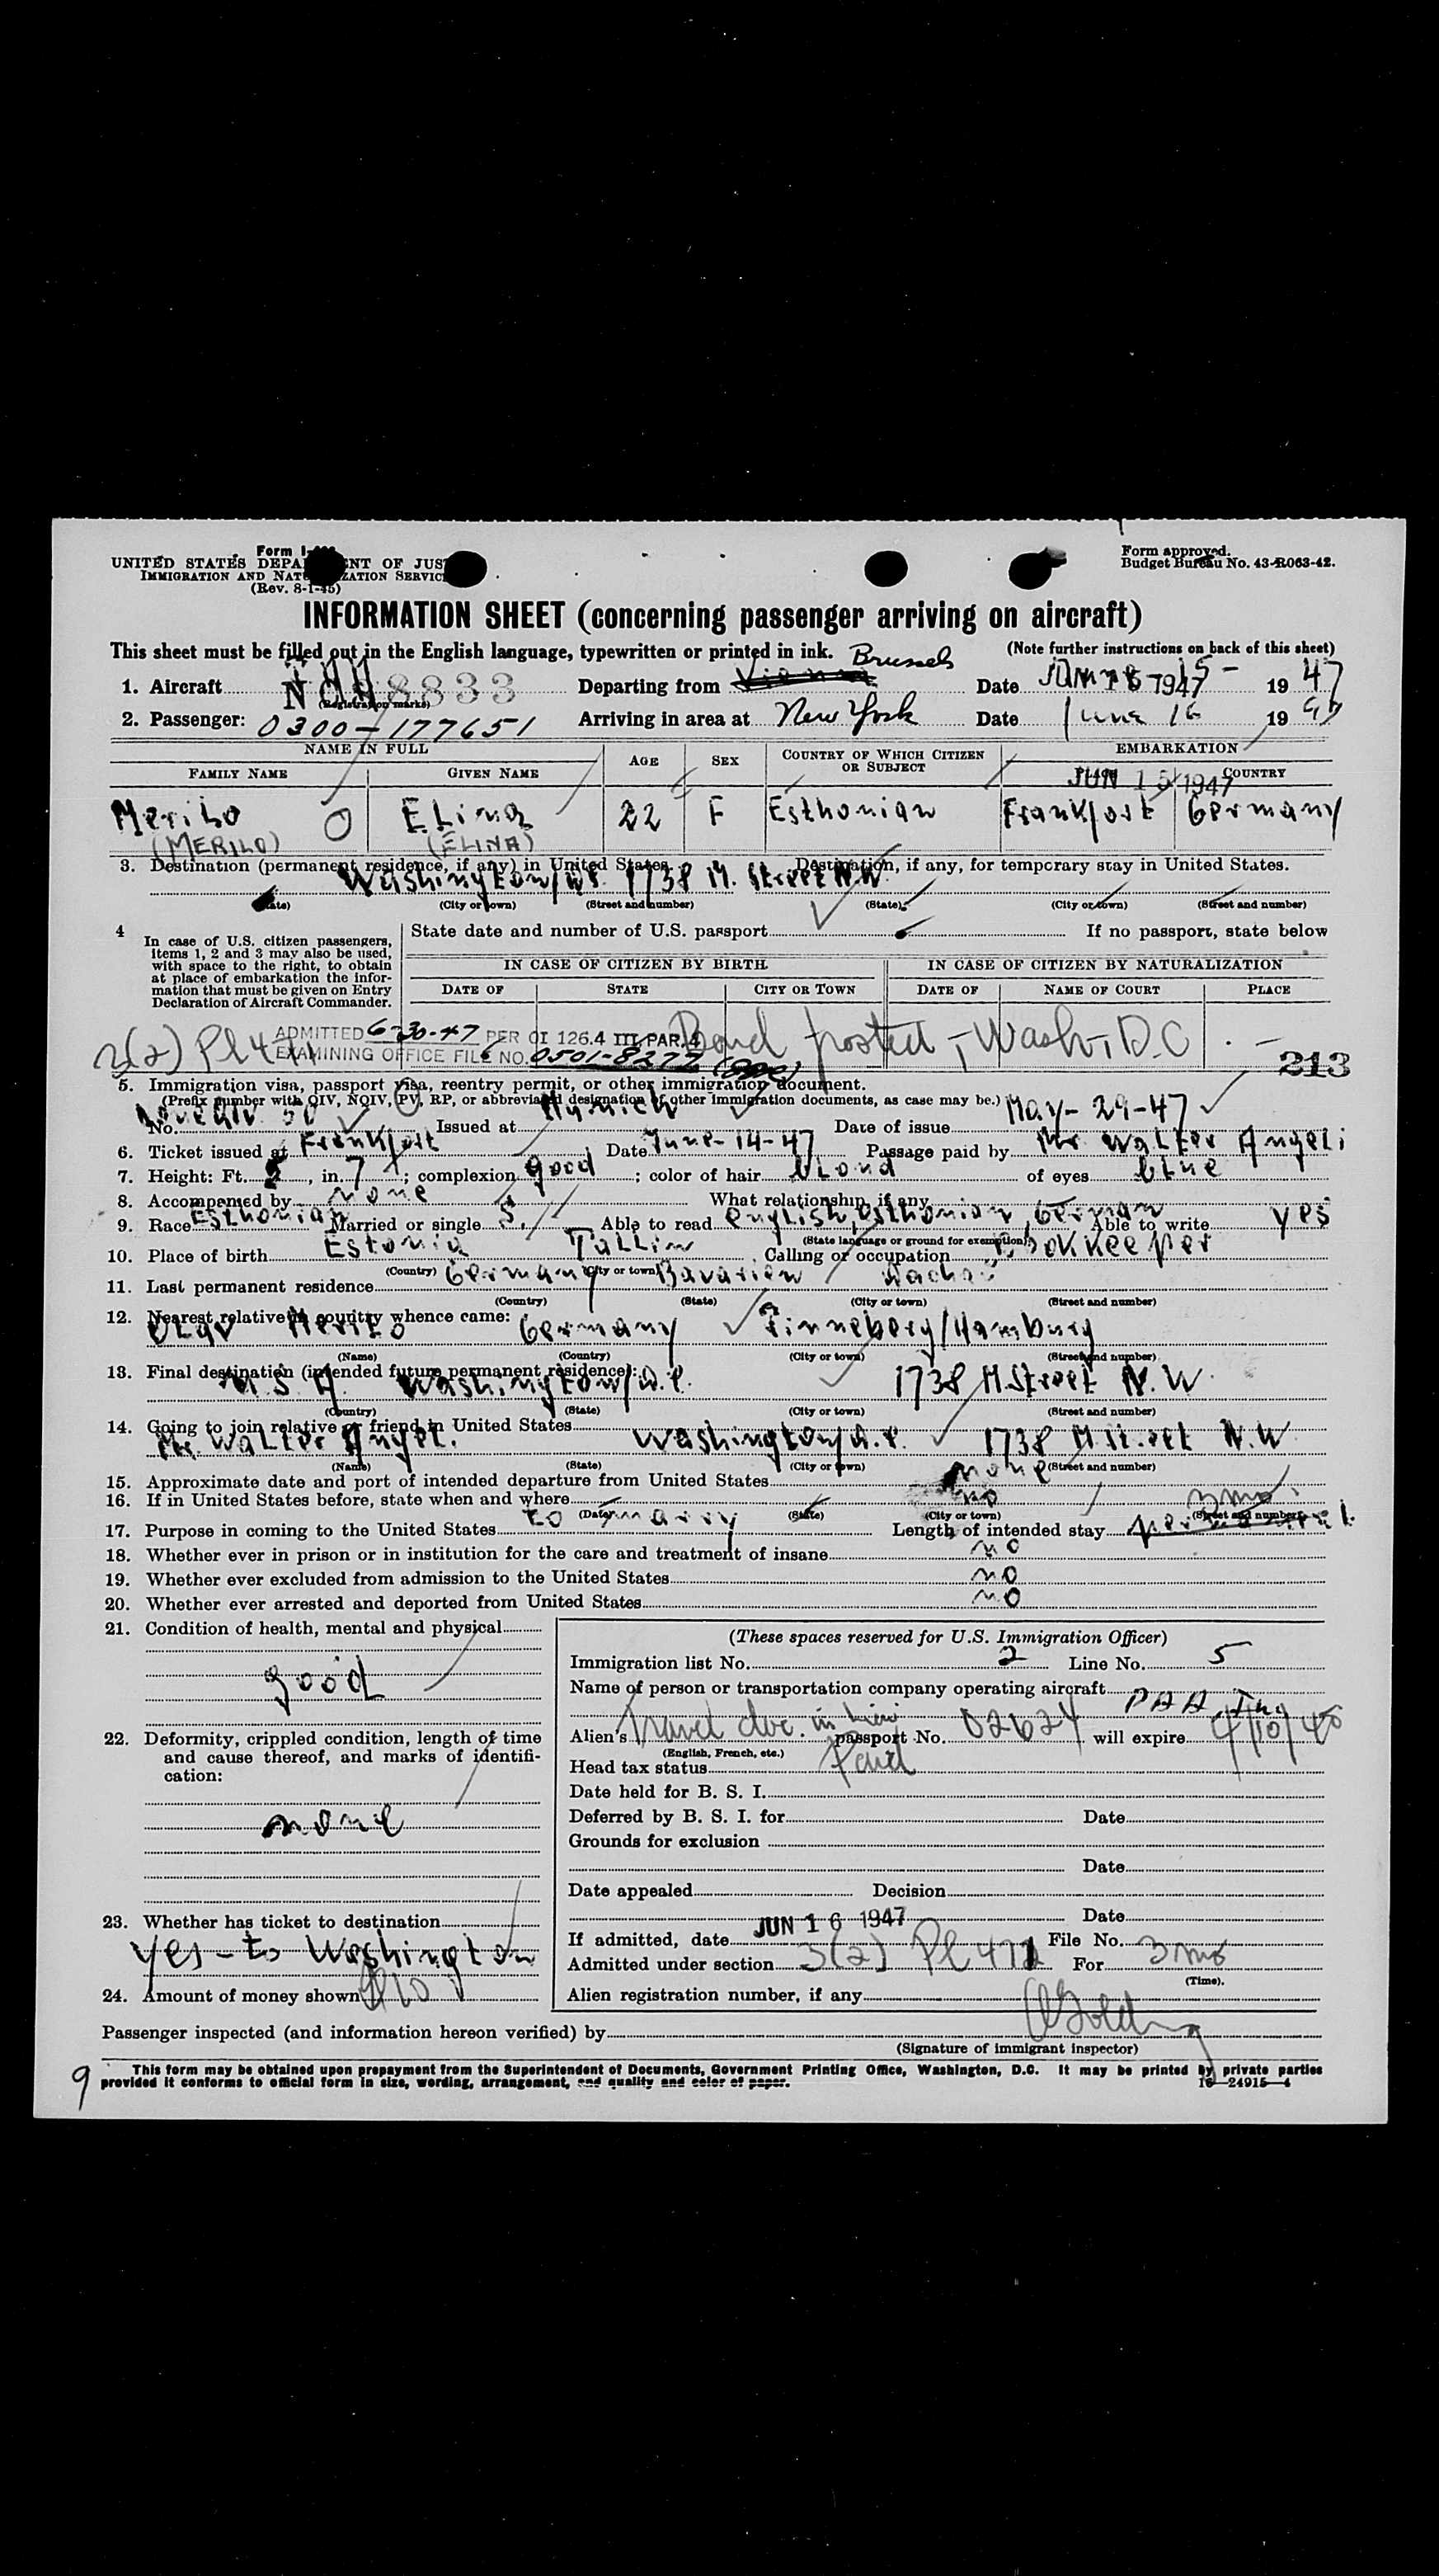 Form I-
UNITED STATES DEPARTMENT OF JUSTICE
IMMIGRATION AND NATURALIZATION SERVICE
(Rev. 8-1-45)
Form approved.
Budget Bureau No. 43-R063-42.
INFORMATION SHEET (concerning passenger arriving on aircraft)
This sheet must be filled out in the English language, typewritten or printed in ink. (Note further instructions on back of this sheet)
1. Aircraft 8833 (Registration marks) Departing from Vienna Brussels Date JUN 15 1947 15 - 1947
2. Passenger: 0300-177651 Arriving in area at New York Date June 16 1947
NAME IN FULL AGE SEX COUNTRY OF WHICH CITIZEN OR SUBJECT EMBARKATION
FAMILY NAME GIVEN NAME JUN 15 1947 COUNTRY
Merilo O ELina 22 F Esthonian Frankfort Germany
(MERILO) (ELINA)
3. Destination (permanent residence, if any) in United States. Destination, if any, for temporary stay in United States.
Washington 1738 M. Street N.W.
(State) (City or town) (Street and number) (State) (City or town) (Street and number)
4 In case of U.S. citizen passengers, items 1, 2 and 3 may also be used, with space to the right, to obtain at place of embarkation the information that must be given on Entry Declaration of Aircraft Commander.
State date and number of U.S. passport If no passport, state below
IN CASE OF CITIZEN BY BIRTH IN CASE OF CITIZEN BY NATURALIZATION
DATE OF STATE CITY OR TOWN DATE OF NAME OF COURT PLACE
3(2) Pl 471 ADMITTED 6-30-47 PER OI 126.4 III PAR.4 Bond posted - Wash, D.C.
EXAMINING OFFICE FILE NO. 0501-8277 213
5. Immigration visa, passport visa, reentry permit, or other immigration document.
(Prefix number with QIV, NQIV, PV, RP, or abbreviated designation of other immigration documents, as case may be.)
No. Issued at Munich Date of issue May-29-47
6. Ticket issued at Frankfort Date June-14-47 Passage paid by Mr Walter Angeli
7. Height: Ft. 5, in. 7; complexion good; color of hair blond of eyes blue
8. Accompanied by none What relationship, if any
9. Race Esthonian Married or single S. Able to read english, esthonian, German Able to write yes
(State language or ground for exemption)
10. Place of birth Estonia Tallin Calling or occupation Bookkeeper
(Country) (City or town)
11. Last permanent residence Germany Bavarien
(Country) (State) (City or town) (Street and number)
12. Nearest relative in country whence came:
Merilo Germany Pinneberg/Hamburg
(Name) (Country) (City or town) (Street and number)
13. Final destination (intended future permanent residence):
U.S.A. Washington/D.C. 1738 M.Street N.W.
(Country) (State) (City or town) (Street and number)
14. Going to join relative or friend in United States
Mr. Walter Angel. Washington/D.C. 1738 M.Street N.W
(Name) (State) (City or town) (Street and number)
15. Approximate date and port of intended departure from United States none
16. If in United States before, state when and where no
(Date) (State) (City or town) (Street and number)
17. Purpose in coming to the United States to marry Length of intended stay 3 mo.
18. Whether ever in prison or in institution for the care and treatment of insane no
19. Whether ever excluded from admission to the United States no
20. Whether ever arrested and deported from United States no
21. Condition of health, mental and physical
good
22. Deformity, crippled condition, length of time and cause thereof, and marks of identification:
none
23. Whether has ticket to destination
yes - to Washington
24. Amount of money shown $10
(These spaces reserved for U.S. Immigration Officer)
Immigration list No. 2 Line No. 5
Name of person or transportation company operating aircraft PAA, Inc
Alien's travel doc. in lieu passport No. 02624 will expire 4/10/48
(English, French, etc.)
Head tax status Paid
Date held for B. S. I.
Deferred by B. S. I. for Date
Grounds for exclusion
Date
Date appealed Decision
Date
If admitted, date JUN 16 1947 File No.
Admitted under section 3(2) Pl 471 For 3 mo
(Time).
Alien registration number, if any
Passenger inspected (and information hereon verified) by
(Signature of immigrant inspector)
This form may be obtained upon prepayment from the Superintendent of Documents, Government Printing Office, Washington, D.C. It may be printed by private parties
provided it conforms to official form in size, wording, arrangement, and quality and color of paper. 16-24915-4
9